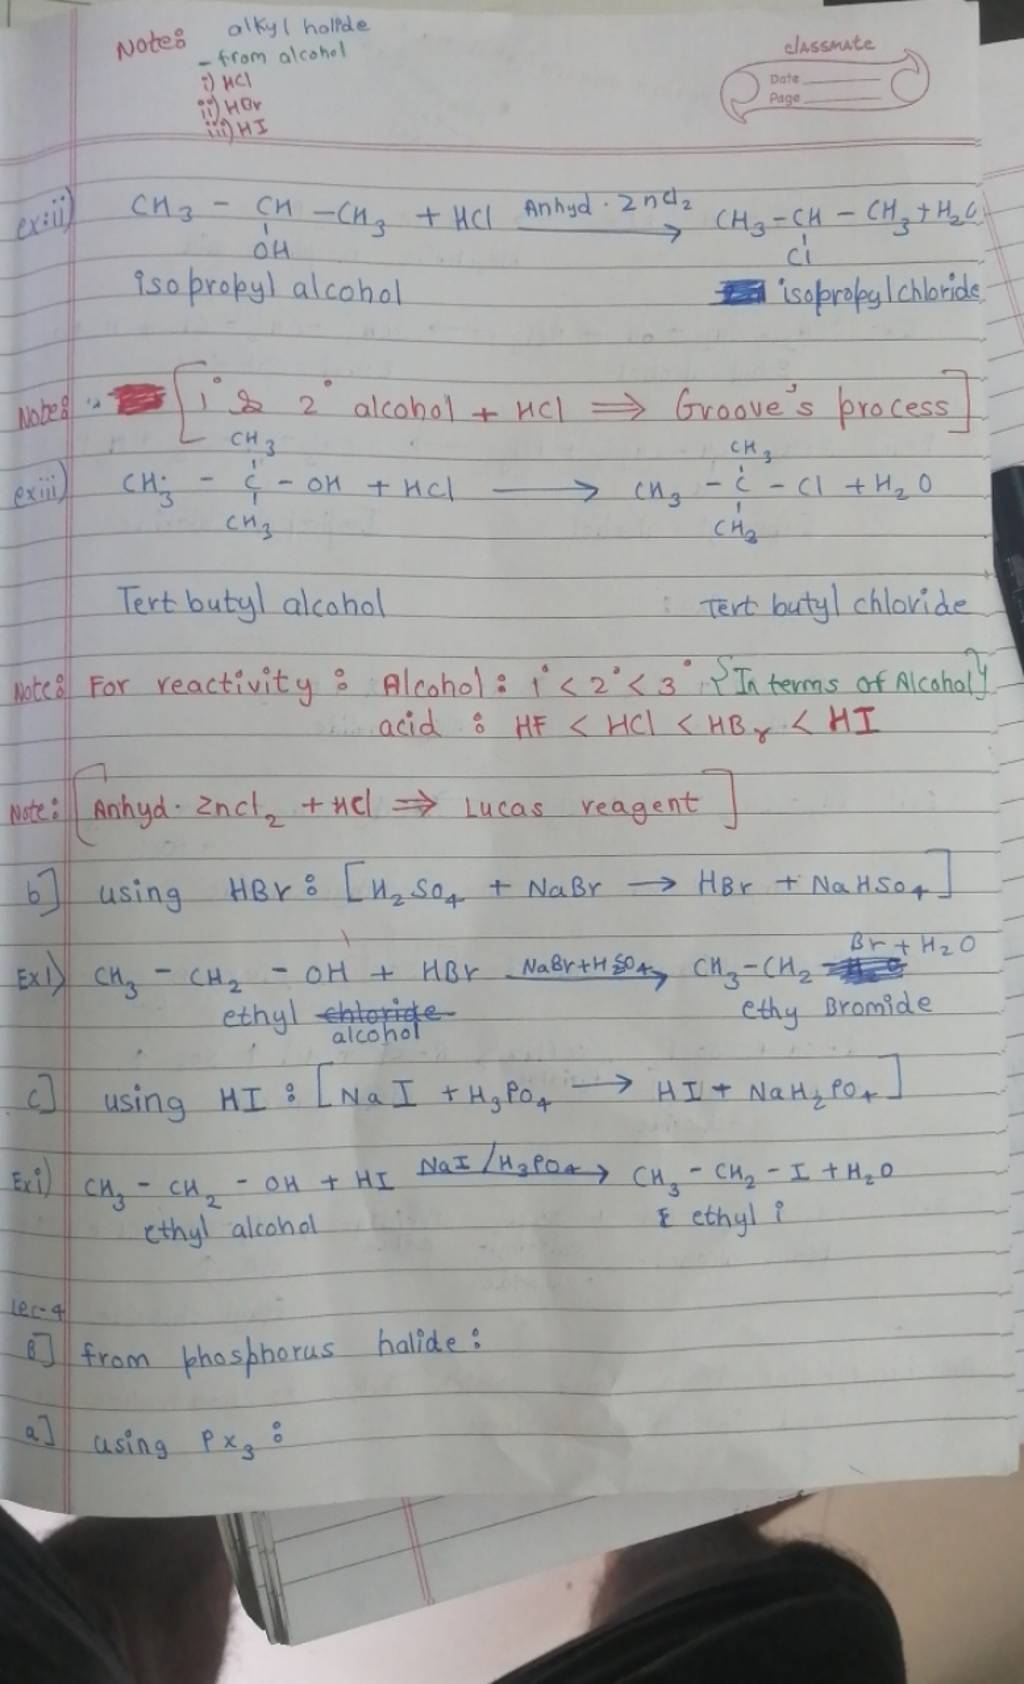 Note: alkyl halide
- from alcohol
i) HCl
ii) HBr
iii) HI
classmate
Date
Page
ex:ii) CH3 - CH - CH3 + HCl Anhyd. Zncl2 → CH3 - CH - CH3 + H2O
OH Cl
isopropyl alcohol isopropylchloride
Note: [1° & 2° alcohol + HCl ⇒ Groove's process]
CH3 CH3
exiii) CH3 - C - OH + HCl → CH3 - C - Cl + H2O
CH3 CH3
Tert butyl alcohol Tert butyl chloride
Note: For reactivity : Alcohol : 1° < 2° < 3° {In terms of Alcohol}
acid : HF < HCl < HBr < HI
Note: [Anhyd. Zncl2 + HCl ⇒ Lucas reagent]
b] using HBr : [H2SO4 + NaBr → HBr + NaHSO4]
Br + H2O
Ex1) CH3 - CH2 - OH + HBr NaBr+H2SO4 → CH3 - CH2
ethyl chloride ethy Bromide
alcohol
c] using HI : [NaI + H3PO4 → HI + NaH2PO4]
Exi) CH3 - CH2 - OH + HI NaI/H3PO4 → CH3 - CH2 - I + H2O
ethyl alcohol ethyl i
Lec-4
B] from phosphorus halide :
a] using PX3 :